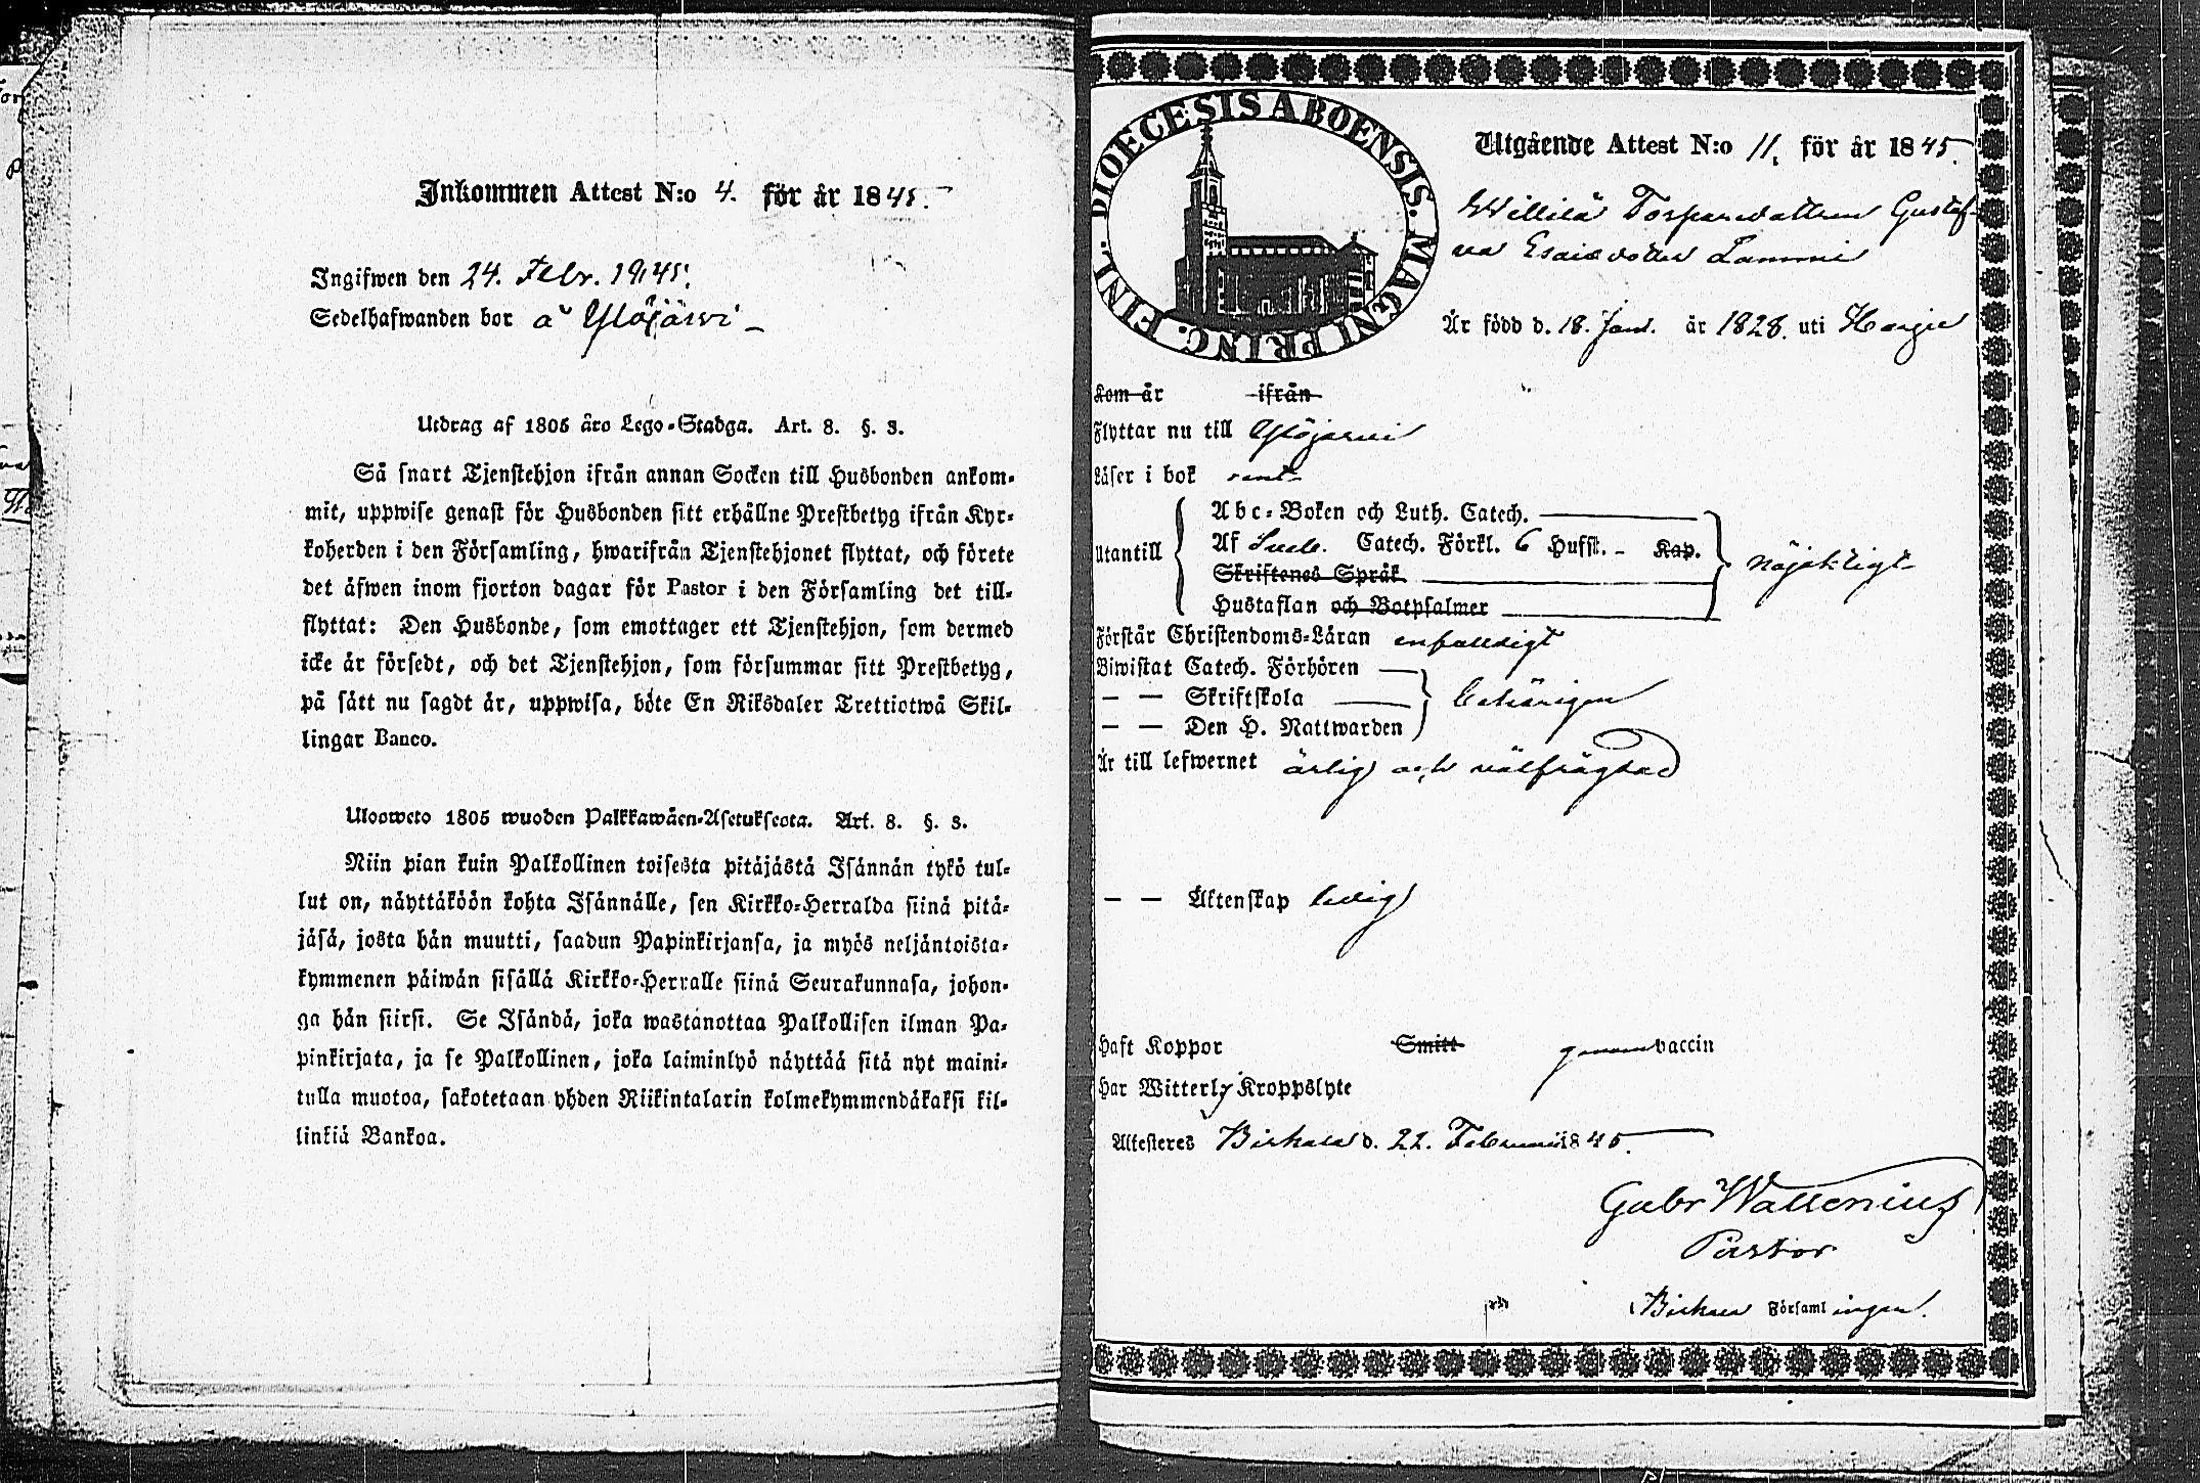 Inkommen Attest N:o 4. för år 1845.
Ingifwen den 24. Febr. 1845.
Sedelhafwanden bor å Ylöjärvi
Utdrag af 1805 års Lego-Stadga. Art. 8. §. 3.
Så snart Tjenstehjon ifrån annan Socken till Husbonden ankom-
mit, uppwise genast för Husbonden sitt erhållne Prestbetyg ifrån Kyr-
koherden i den Församling, hwarifrån Tjenstehjonet flyttat, och förete
det äfwen inom fjorton dagar för Pastor i den Församling det till-
flyttat: Den Husbonde, som emottager ett Tjenstehjon, som dermed
icke är försedt, och det Tjenstehjon, som försummar sitt Prestbetyg,
på sätt nu sagdt är, uppwisa, böte En Riksdaler Trettiotwå Skil-
lingar Banco.
Ulosweto 1805 wuoden Palkkawäen-Asetuksesta. Art. 8. §. 3.
Niin pian kuin Palkollinen toisesta pitäjästä Isännän tykö tul-
lut on, näyttäköön kohta Isännälle, sen Kirkko-Herralda siinä pitä-
jäsä, josta hän muutti, saadun Papinkirjansa, ja myös neljäntoista-
kymmenen päiwän sisällä Kirkko-Herralle siinä Seurakunnasa, johon-
ga hän siirsi. Se Isändä, joka wastanottaa Palkollisen ilman Pa-
pinkirjata, ja se Palkollinen, joka laiminlyö näyttää sitä nyt maini-
tulla muotoa, sakotetaan yhden Riikintalarin kolmekymmendäkaksi kil-
linkiä Bankoa.
DIOECESIS ABOENSIS. MAGNI PRINC. FINL.
Utgående Attest N:o 11. för år 1845.
Willilä Torparedottren Gustaf-
va Esaiedotter Lammi
Är född d. 18. Jan. år 1828. uti Harju
Kom år ifrån
Flyttar nu till Ylöjärvi
Läser i bok rent
Utantill
Abc-Boken och Luth. Catech.
Af Sveb. Catech. Förkl. 6 Hufst. Kap.
Skriftenes Språk
Hustaflan och Botpsalmer
nöjaktigt
Förstår Christendoms-Läran enfalldigt
Biwistat Catech. Förhören
— — Skriftskola
— — Den H. Nattwarden
behörigen
Är till lefwernet ärlig och välfrägdad
— — Äktenskap ledig
Haft Koppor Smitt genom vaccin
Har Witterl. Kroppslyte
Attesteres Birkala d. 22. Februarii 1845.
Gabr Wallenius
Pastor
Birkala Församlingen.